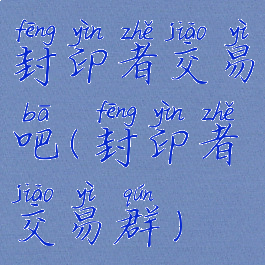 fēng yìn zhě jiāo yì
封印者交易
bā fēng yìn zhě
吧(封印者
jiāo yì qún
交易群)